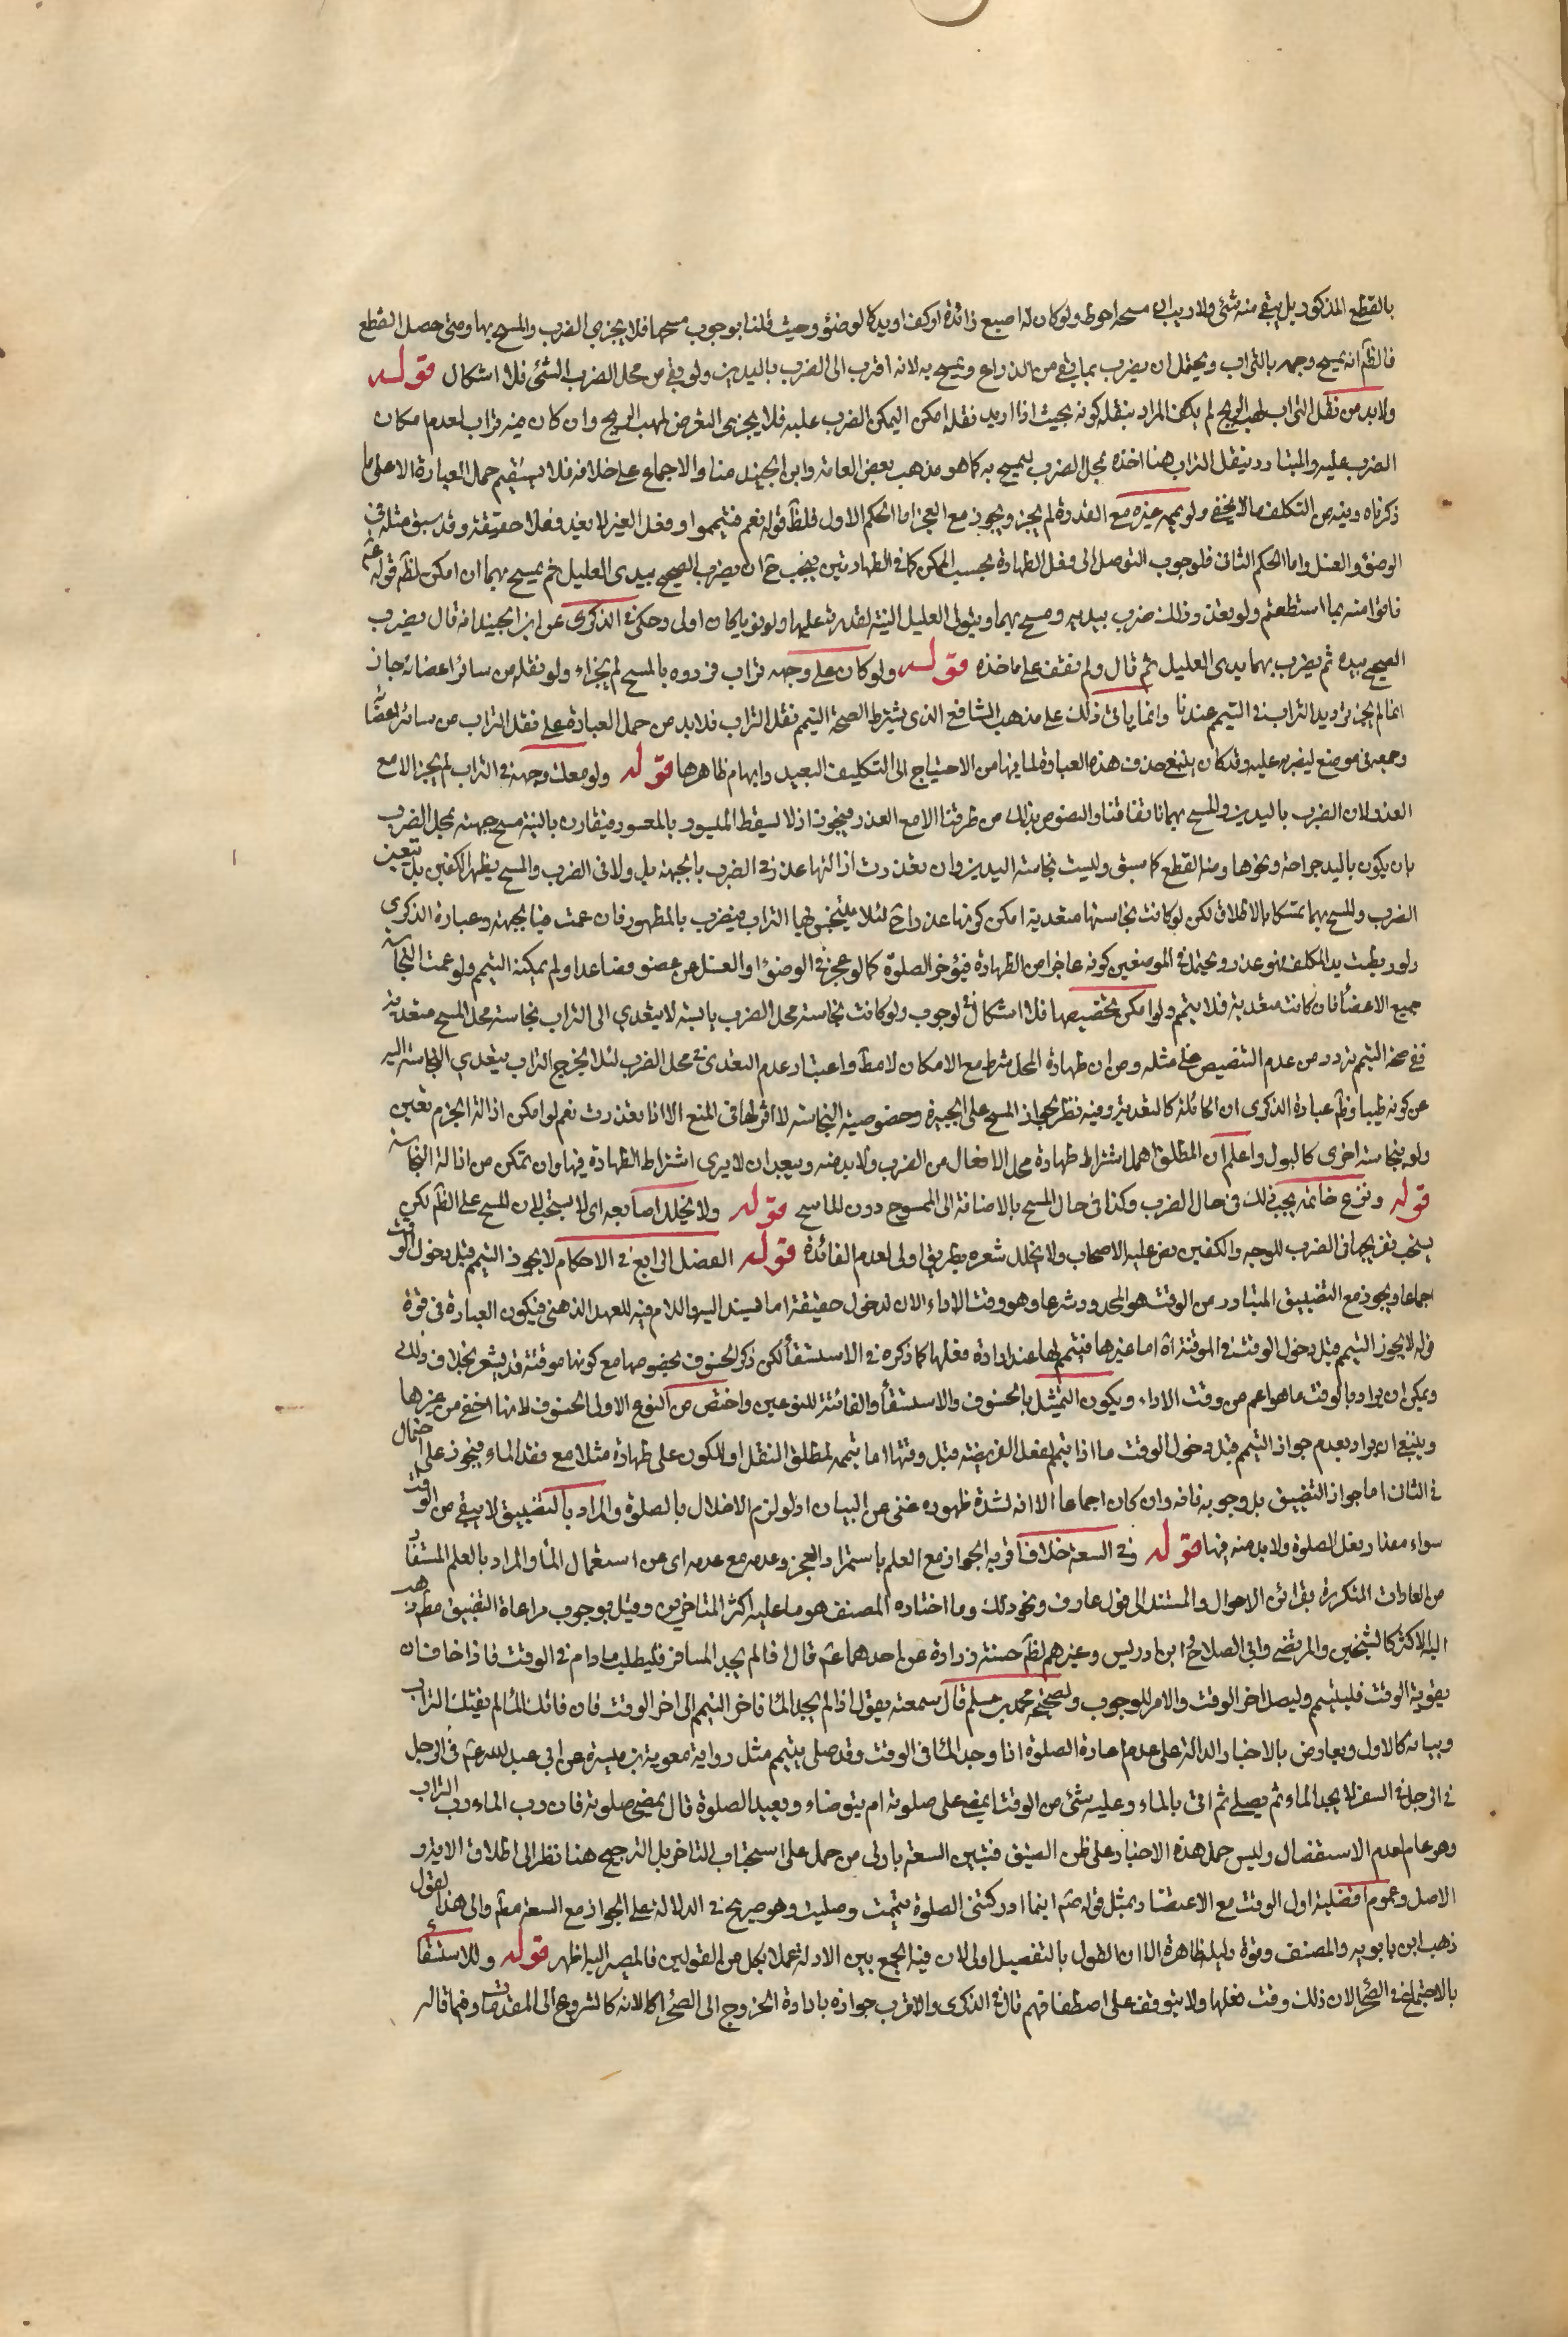 بالقطع المذكور بل يبقى منه شئ ولا ريب ان مسحه احوط ولو كان له اصبع زائدة او كف او يد كالوضوء وحيث قلنا بوجوب مسحها فلا يجزى الضرب والمسح بها ومتى حصل القطع
فالظ انه يمسح وجهه بالتراب ويحتمل ان يضرب بما بقى من الذراع ويمسح به لانه اقرب الى الضرب باليدين ولو بقى من محل الضرب شئ فلا اشكال قوله
ولابد من نقل التراب لمهب الريح لم يكف المراد بنقله كونه بحيث اذا اريد نقله امكن ليمكن الضرب عليه فلا يجزى التعرض لمهب الريح وان كان فيه تراب لعدم امكان
الضرب عليه والمتبادر بنقل التراب هنا اخذه بمحل الضرب ليمسح به كما هو مذهب بعض العامة وابن الجنيد منا والاجماع على خلافه فلا يستقيم حمل العبارة الا على ما
ذكرناه وفيه من التكلف ما لا يخفى ولو يممه غيره مع القدرة لم يجز ويجوز مع العجز اما الحكم الاول فلظ قوله نعم فتيمموا وفعل الغير لا يعد فعلا حقيقة وقد سبق مثله في
الوضوء والغسل واما الحكم الثانى فلوجوب التوصل الى فعل الطهارة بحسب الممكن كما في الطهارتين فيجب ح ان يضرب الصحيح بيدى العليل ثم يمسح بهما ان امكن لظ قوله ع
فاتوا منه بما استطعتم ولو تعذر ذلك ضرب بيديه ومسح بهما ويتولى العليل النية لقدرته عليها ولو نويا كان اولى وحكى في الذكرى عن ابن الجنيد انه قال يضرب
الصحيح بيده ثم يضرب بهما يدى العليل ثم قال ولم نقف على ماخذه قوله ولو كان على وجهه تراب فردده بالمسح لم يجزاء ولو نقله من سائر اعضائه جاز
انما لم يجز ترديد التراب في التيمم عندنا وانما ياتى ذلك على مذهب الشافعى الذى يشترط لصحة التيمم نقل التراب فلابد من حمل العبارة على نقل التراب من سائر اعضا
وجمعه في موضع ليضرب عليه وقد كان ينبغى حذف هذه العبارة لما فيها من الاحتياج الى التكليف البعيد وايهام ظاهرها قوله ولو معك وجهه في التراب لم يجز الا مع
العذر لان الضرب باليدين والمسح بهما اتفاقنا والنصوص بذلك من طرقنا الا مع العذر فيجوز اذ لا يسقط الميسور بالمعسور فيقارن بالنية مسح جبهته بمحل الضرب
بان يكون باليد جراحة ونحوها ومنه القطع كما سبق وليست نجاسة اليدين وان تعذرت ازالتها عذر في الضرب بالجبهة بل ولا في الضرب والمسح بظهر الكفين بل يتعين
الضرب والمسح بهما تمسكا بالاطلاق لكن لو كانت نجاستها متعدية امكن كونها عذر ا ح لئلا يتنجس بها التراب فيضرب بالظهور فان عمت فبالجبهة وعبارة الذكرى
ولو ربطت يد المكلف فهو عذر ويحتمل في الموضعين كونه عاجزا من الطهارة فيؤخر الصلوة كما لو عجز في الوضوء او الغسل عن عضو فصاعدا ولم يمكنه التيمم ولو عمت النجاسة
جميع الاعضاء فان كانت متعدية فلا يتيمم ولو امكن تخفيفها فلا اشكال في الوجوب ولو كانت نجاسة محل الضرب يابسة لا يتعدى الى التراب نجاسة محل المسح متعدية
ففى صحة التيمم تردد من عدم التنصيص على مثله ومن ان طهارة المحل شرط مع الامكان لا مط واعتبار عدم التعدى في محل الضرب لئلا يخرج التراب بتعدى النجاسة اليه
عن كونه طيبا وظ عبارة الذكرى ان الحائلة كالمتعدية وفيه نظر لجواز المسح على الجبيرة وخصوصية النجاسة لا اثر لها في المنع الا اذا تعذرت نعم لو امكن ازالة الجرم تعين
ولو بنجاسة اخرى كالبول واعلم ان المطلق اهمل اشتراط طهارة محل الافعال من الضرب ولابد منه ويبعد ان لا يرى اشتراط الطهارة فيها وان تمكن من ازالة النجاسة
قوله ونزع خاتمه يجب ذلك في حال الضرب وكذا في حال المسح بالاضافة الى الممسوح دون الماسح قوله ولا يخلل اصابعه اى لا يستحب لان المسح على الظ لكن
يستحب تفريجها في الضرب للوجه والكفين نص عليه الاصحاب ولا يخلل شعره بطريق اولى لعدم الفائدة قوله الفصل الرابع في الاحكام لا يجوز التيمم قبل دخول الوقت
اجماعا ويجوز مع التضييق المتبادر من الوقت هو المحدود شرعا وهو وقت الاداء الان لدخول حقيقة اما فيسند اليه واللام فيه للعهد الذهنى فيكون العبارة في قوة
قوله لا يجوز التيمم قبل دخول الوقت في الموقتة اه اما غيرها فتيمم لها عند ارادة فعلها كما ذكره في الاستسقاء لكن ذكر الخسوف بخصوصها مع كونها موقتة قد يشعر بخلاف ذلك
ويمكن ان يراد بالوقت ما هو اعم من وقت الاداء ويكون التمثيل بالخسوف والاستسقاء والفائتة للنوعين واختص من النوع الاول الخسوف لانها اخفى من غيرها
وينبغى ان يراد بعدم جواز التيمم قبل دخول الوقت ما اذا تيمم لفعل الفريضة قبل وقتها اما تيممه لمطلق النفل او للكون على طهارة مثلا مع فقد الماء فيجوز على احتمال
في الثانى اما جواز التضييق بل وجوبه فانه وان كان اجماعا الا انه لشدة ظهوره غنى عن البيان اذ لو لزم الاخلال بالصلوة والمراد بالتضييق لا يبقى من الوقت
سواء مقدار فعل الصلوة ولابد منه فيها قوله وفي السعة خلاف اقربه الجواز مع العلم باستمرار العجز وعدمه مع عدمه اى من استعمال الماء والمراد بالعلم المستفاد
من العادات المتكررة بقرائن الاحوال والمستند الى قول عارف ونحو ذلك وما اختاره المصنف هو ما عليه اكثر المتاخرين وقيل بوجوب مراعاة التضييق مط ذهب
اليه الاكثر كالشيخين والمرتضى وابى الصلاح وابن ادريس وغيرهم لظ حسنة زرارة عن احدهما ع قال اذا لم يجد المسافر فليطلب مادام في الوقت فاذا خاف ان
يفوته الوقت فليتيمم وليصل اخر الوقت والامر للوجوب ولصحيحة محمد بن مسلم قال سمعته يقول اذا لم يجد الماء فاخر التيمم الى اخر الوقت فان فاتك الماء لم يفتك التراب
وبيانه كالاول ويعارض بالاخبار الدالة على عدم اعادة الصلوة اذا وجد الماء في الوقت وقد صلى بتيمم مثل رواية معوية بن ميسرة عن ابى عبد الله ع في الرجل
في الرجل في السفر لا يجد الماء ثم يصلى ثم اتى بالماء وعليه شئ من الوقت ايمضى على صلوته ام يتوضاء ويعيد الصلوة قال يمضى صلوته فان رب الماء رب التراب
وهو عام لعدم الاستفصال وليس حمل هذه الاخبار على ظن الضيق فتبين السعة باولى من حمل على استحباب التاخر بل الترجيح هنا نظر الى اطلاق الاية و
الاصل وعموم افضلية اول الوقت مع الاعتضاد بمثل قوله ص اينما ادركتنى الصلوة تيممت وصليت وهو صريح في الدلالة على الجواز مع السعة مط والى هذا القول
ذهب ابن بابويه والمصنف وقوة دليله ظاهرة الا ان القول بالتفصيل اولى لان فيه الجمع بين الادلة عملا بكل من القولين فالمصير اليه اظهر قوله وللاستسقاء
بالاجتماع في الصحراء لان ذلك وقت فعلها ولا يتوقف على اصطفافهم قال في الذكرى والاقرب جوازه بارادة الخروج الى الصحراء لانه كالشروع في المقدمات وفيما قاله